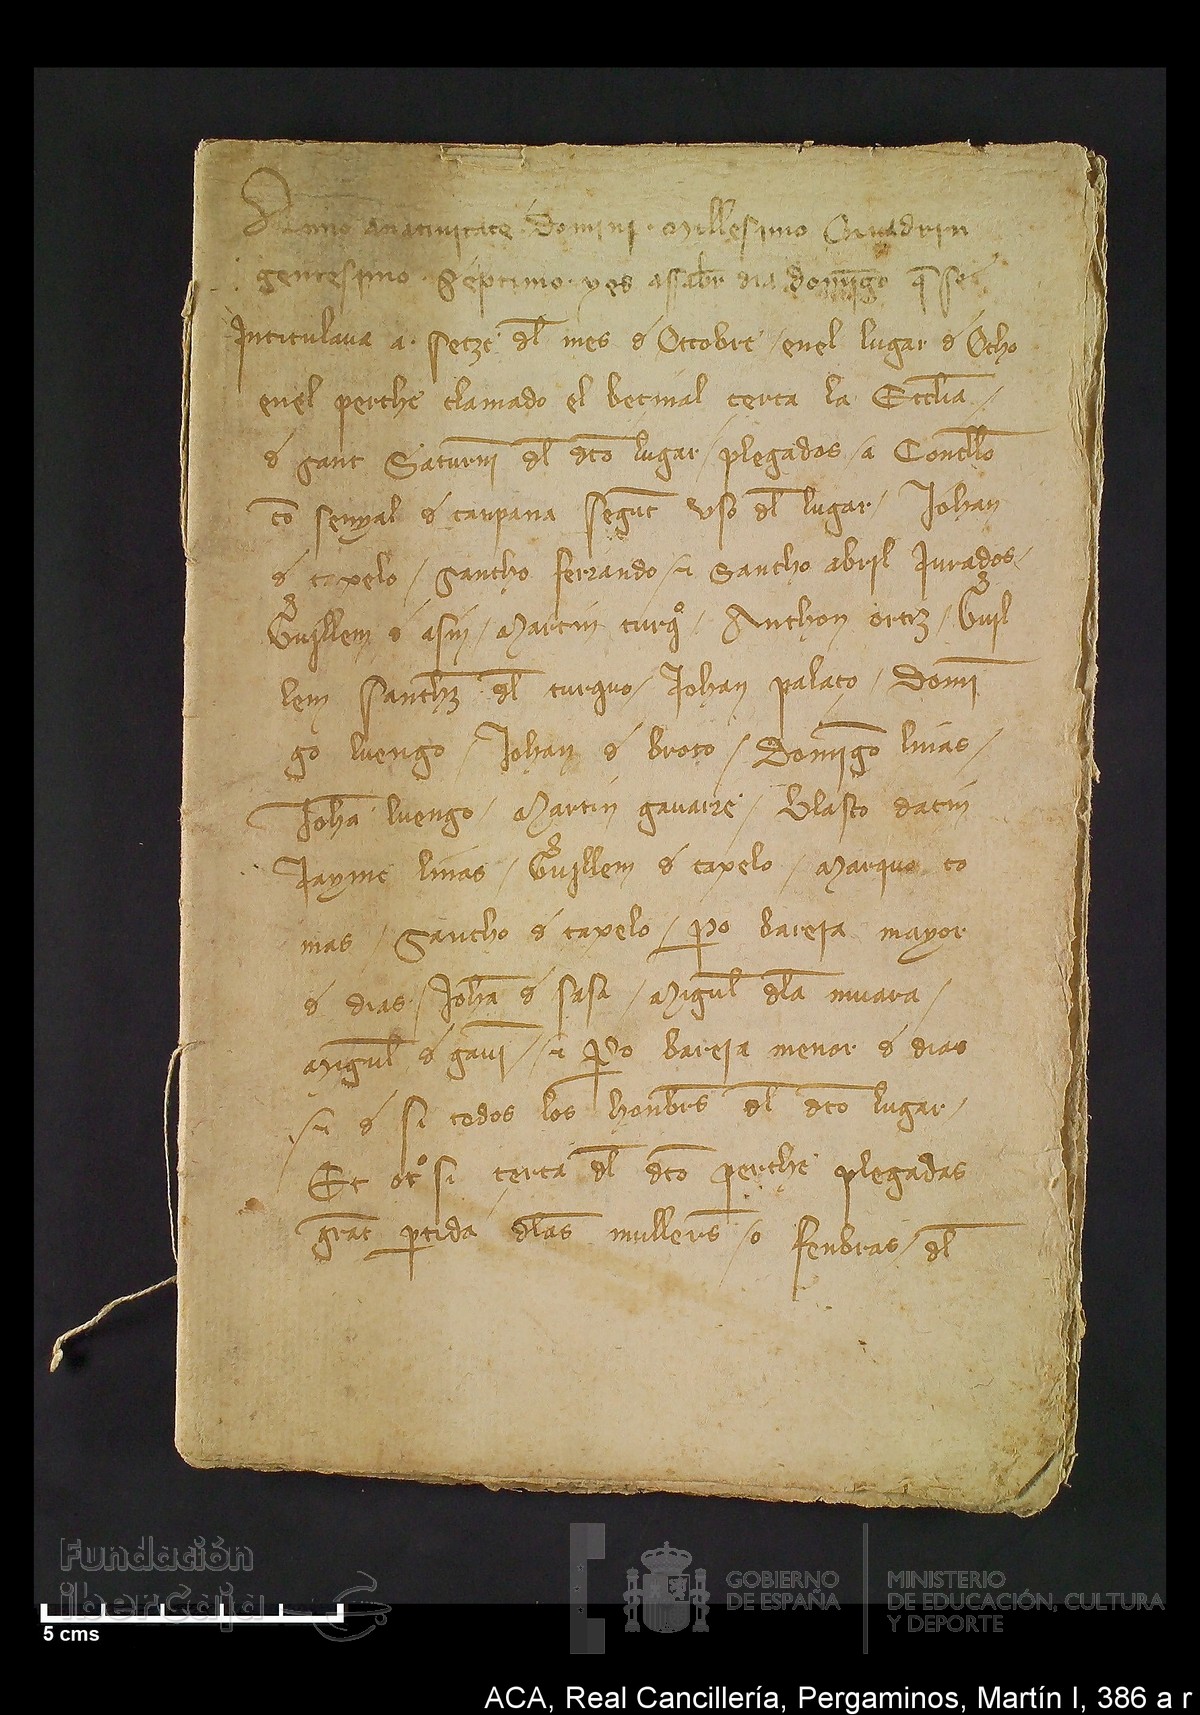 Anno anativitate Domini Millesimo Quadrin
gentesimo Septimo yes assabr dia domīgo q̄ se
Intitulava a setze dl̄ mes d Octobre / enel lugar d Otho
enel perche clamado el becinal cerca la Ecclīa /
d sant Saturnī dl̄ dc̄o lugar / plegados / a Concello
cō senyal d campana segūt uso dl̄ lugar / Johan
d capelo / Sancho ferrando / z Sancho abril Jurados /
Guillem d asin / Martin turqo / Anthon ortiz / Guil
lem sanchz dl̄ turquo / Johan palaco / Domī
go luengo / Johan d broto / Domīgo linas /
Johā luengo / Martin gavarre / Blasco dacin
Jayme linas / Guillem d capelo / Marquo to
mas / Sancho d capelo / Po bareja mayor
d dias / Johā d sasa / Miguel dla nuara /
Miguel d gavī / z Po bareja menor d dias
/ z d si todos los honbrs dl̄ dc̄o lugar /
Et otosi cerca dl̄ dc̄o perche plegadas
grāt ptida dlas mullers / o fenbras / dl̄
Fundación
ibercaja
5 cms
GOBIERNO
DE ESPAÑA
MINISTERIO
DE EDUCACIÓN, CULTURA
Y DEPORTE
ACA, Real Cancillería, Pergaminos, Martín I, 386 a r